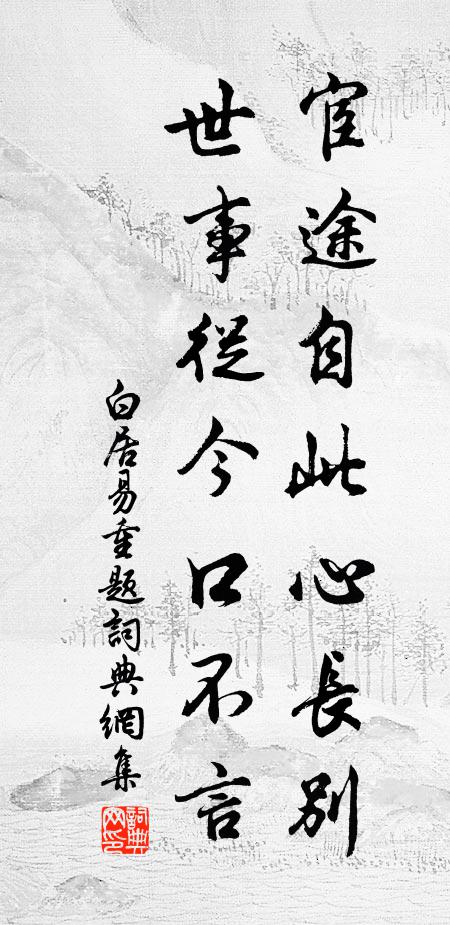 宦途自此心長別
世事從今口不言
白居易重題詞典網集
詞典网印